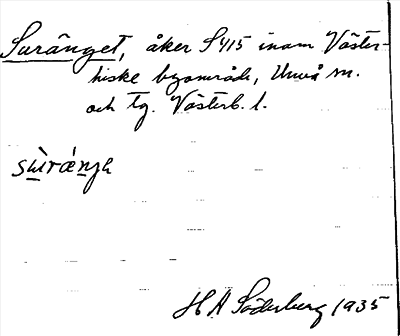 Suränget, åker S 415 inom Väster-
hiske byområde, Umeå sn.
och tg. Västerb. l.
H A Söderberg 1935